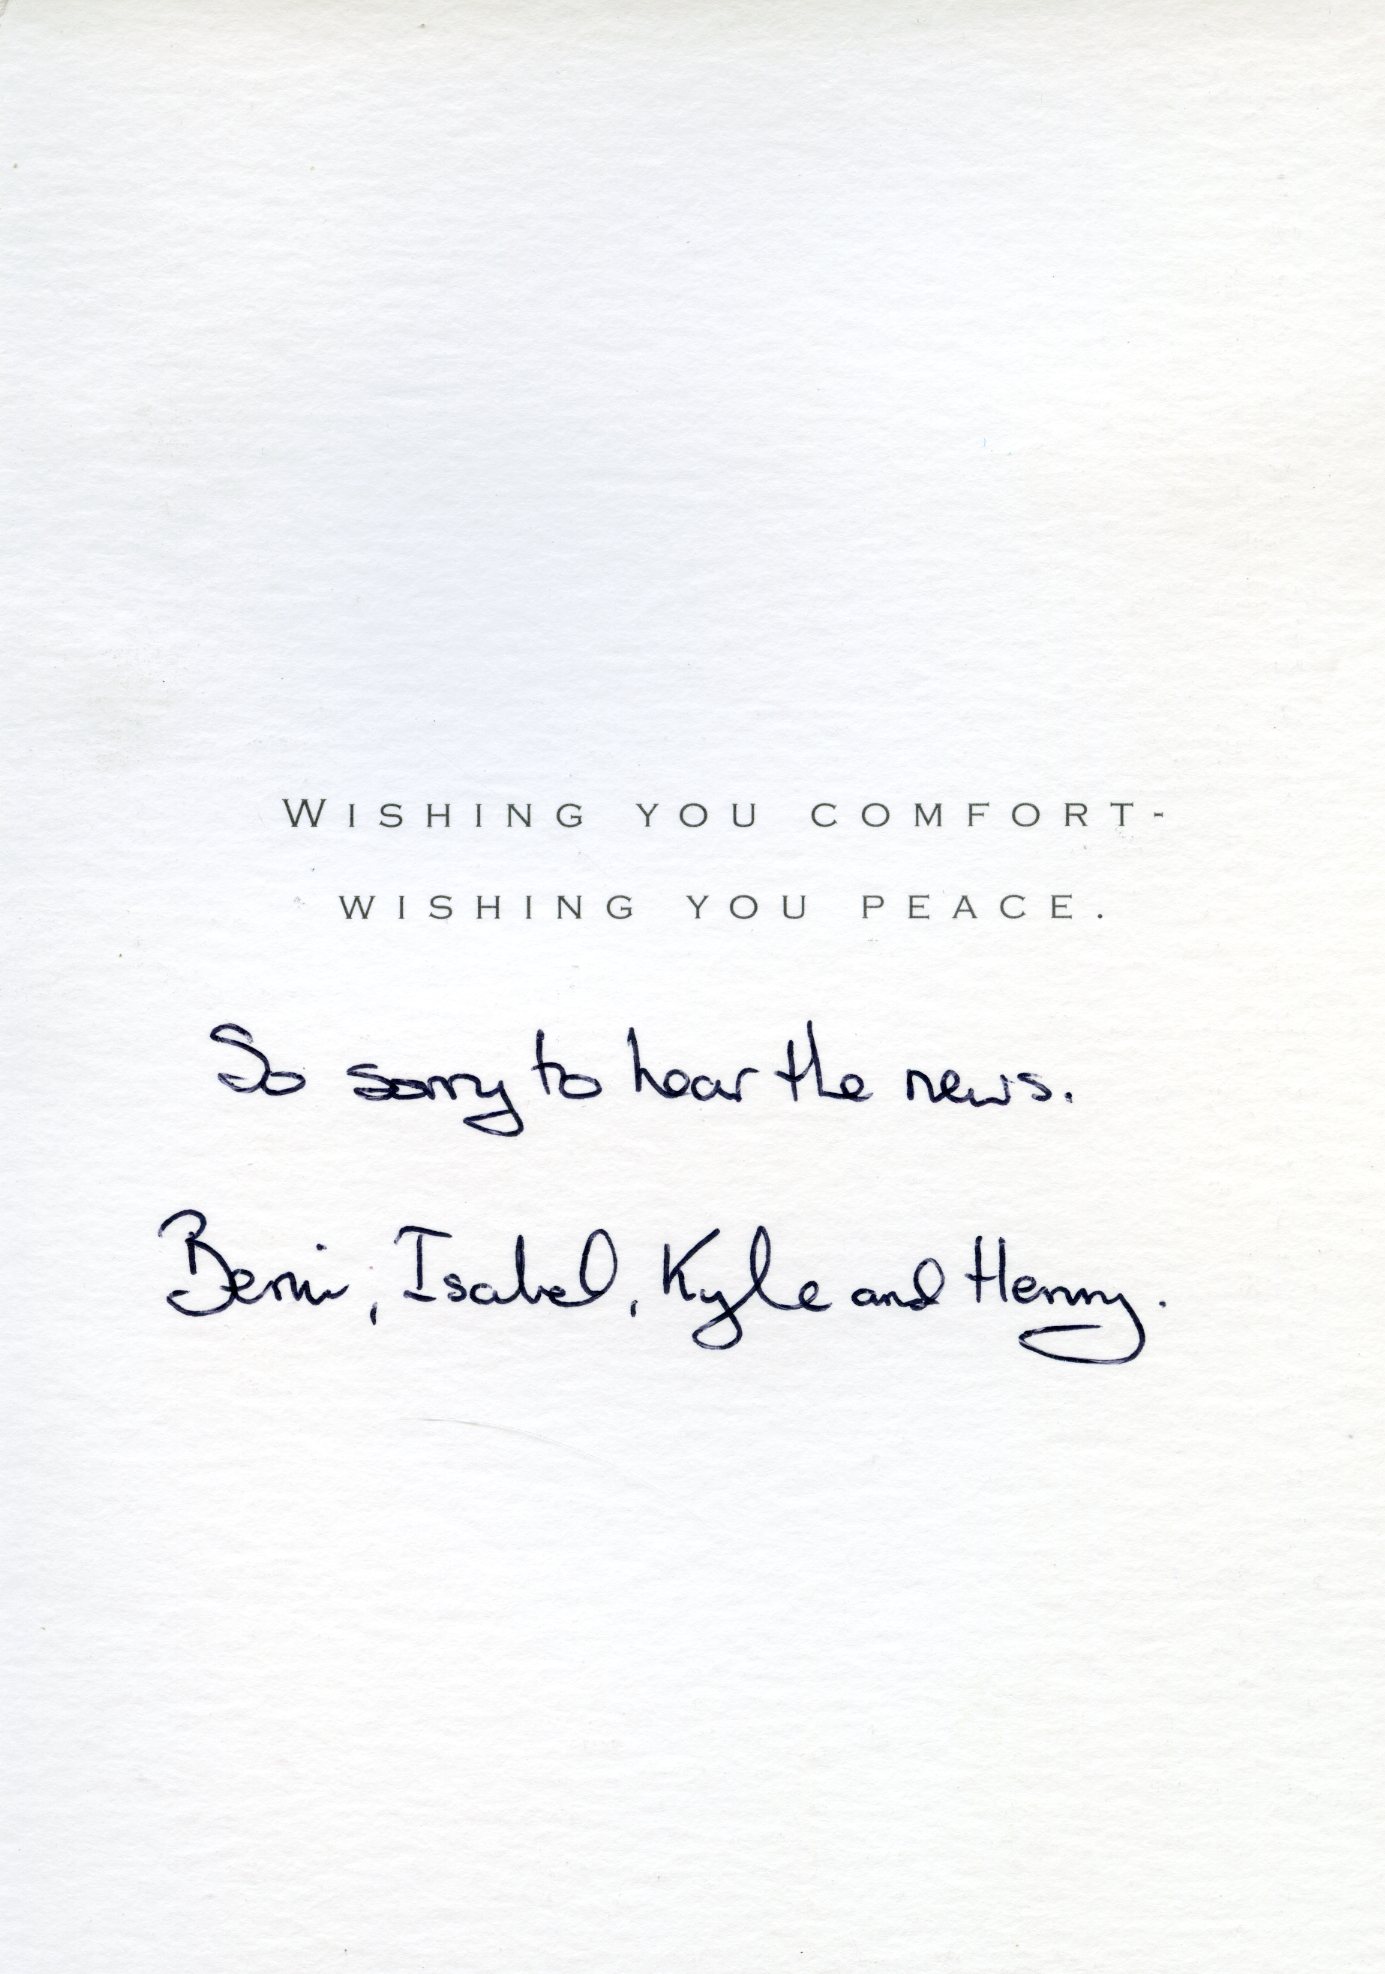 WISHING YOU COMFORT-
WISHING YOU PEACE.
So sorry to hear the news.
Berni, Isabel, Kyle and Henry.